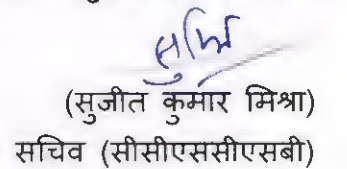 (सुजीत कुमार मिश्रा)
सचिव (सीसीएससीएसबी)